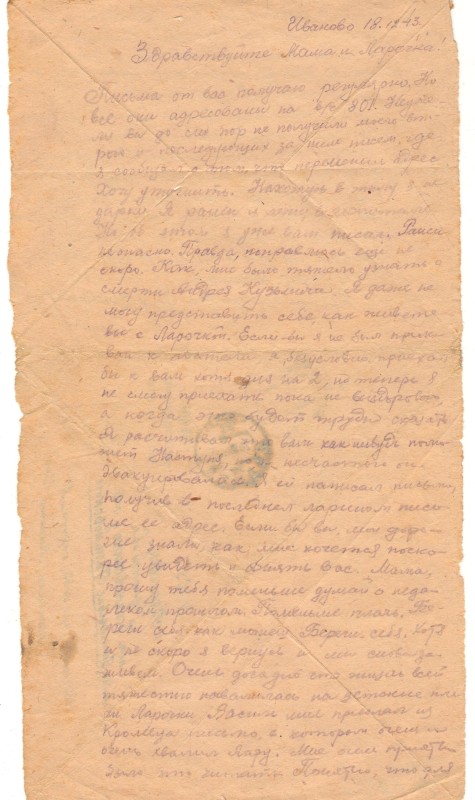 Иваново 18.12.43.
Здравствуйте Мама и Ларочка!
Письма от вас получаю регулярно. Но
все они адресованы на п/я 801. Неуже
ли вы до сих пор не получили моего вто
рого и последующих за ним писем, где
я сообщил о том, что переменил адрес
Хочу уточнить. Нахожусь в тылу я не
даром. Я ранен и лечусь в госпитале
Но об этом я уже вам писал. Ранен
не опасно. Правда, поправлюсь еще не
скоро. Как мне было тяжело узнать о
смерти Андрея Кузьмича. Я даже не
могу представить себе, как живете
вы с Ларочкой. Если бы я не был прико
ван к постели я, безусловно, приехал
бы к вам хотя дня на 2, но теперь я
не смогу приехать пока не выздоровлю
а когда это будет трудно сказать
Я рассчитывал, что вам как нибудь помо
жет Настуся несчастью он
эвакуировалась ей написал письмо,
получив в последнем Ларисином пись
ме ее адрес. Если бы вы, мои доро
гие знали, как мне хочется поско
рее увидеть и обнять вас. Мама,
прошу тебя поменьше думай о неда
леком прошлом. Поменьше плачь. Бе
реги себя как можешь Береги себя. Хотя
и не скоро я вернусь и мы снова за
живем. Очень досадно что жизнь всей
тяжестью навалилась на детские пле
чи Ларочки. Васин мне прислал из
письмо, в котором очень и
очень хвалил Лару. Мне очень приятно
было это читать Понятно, что для